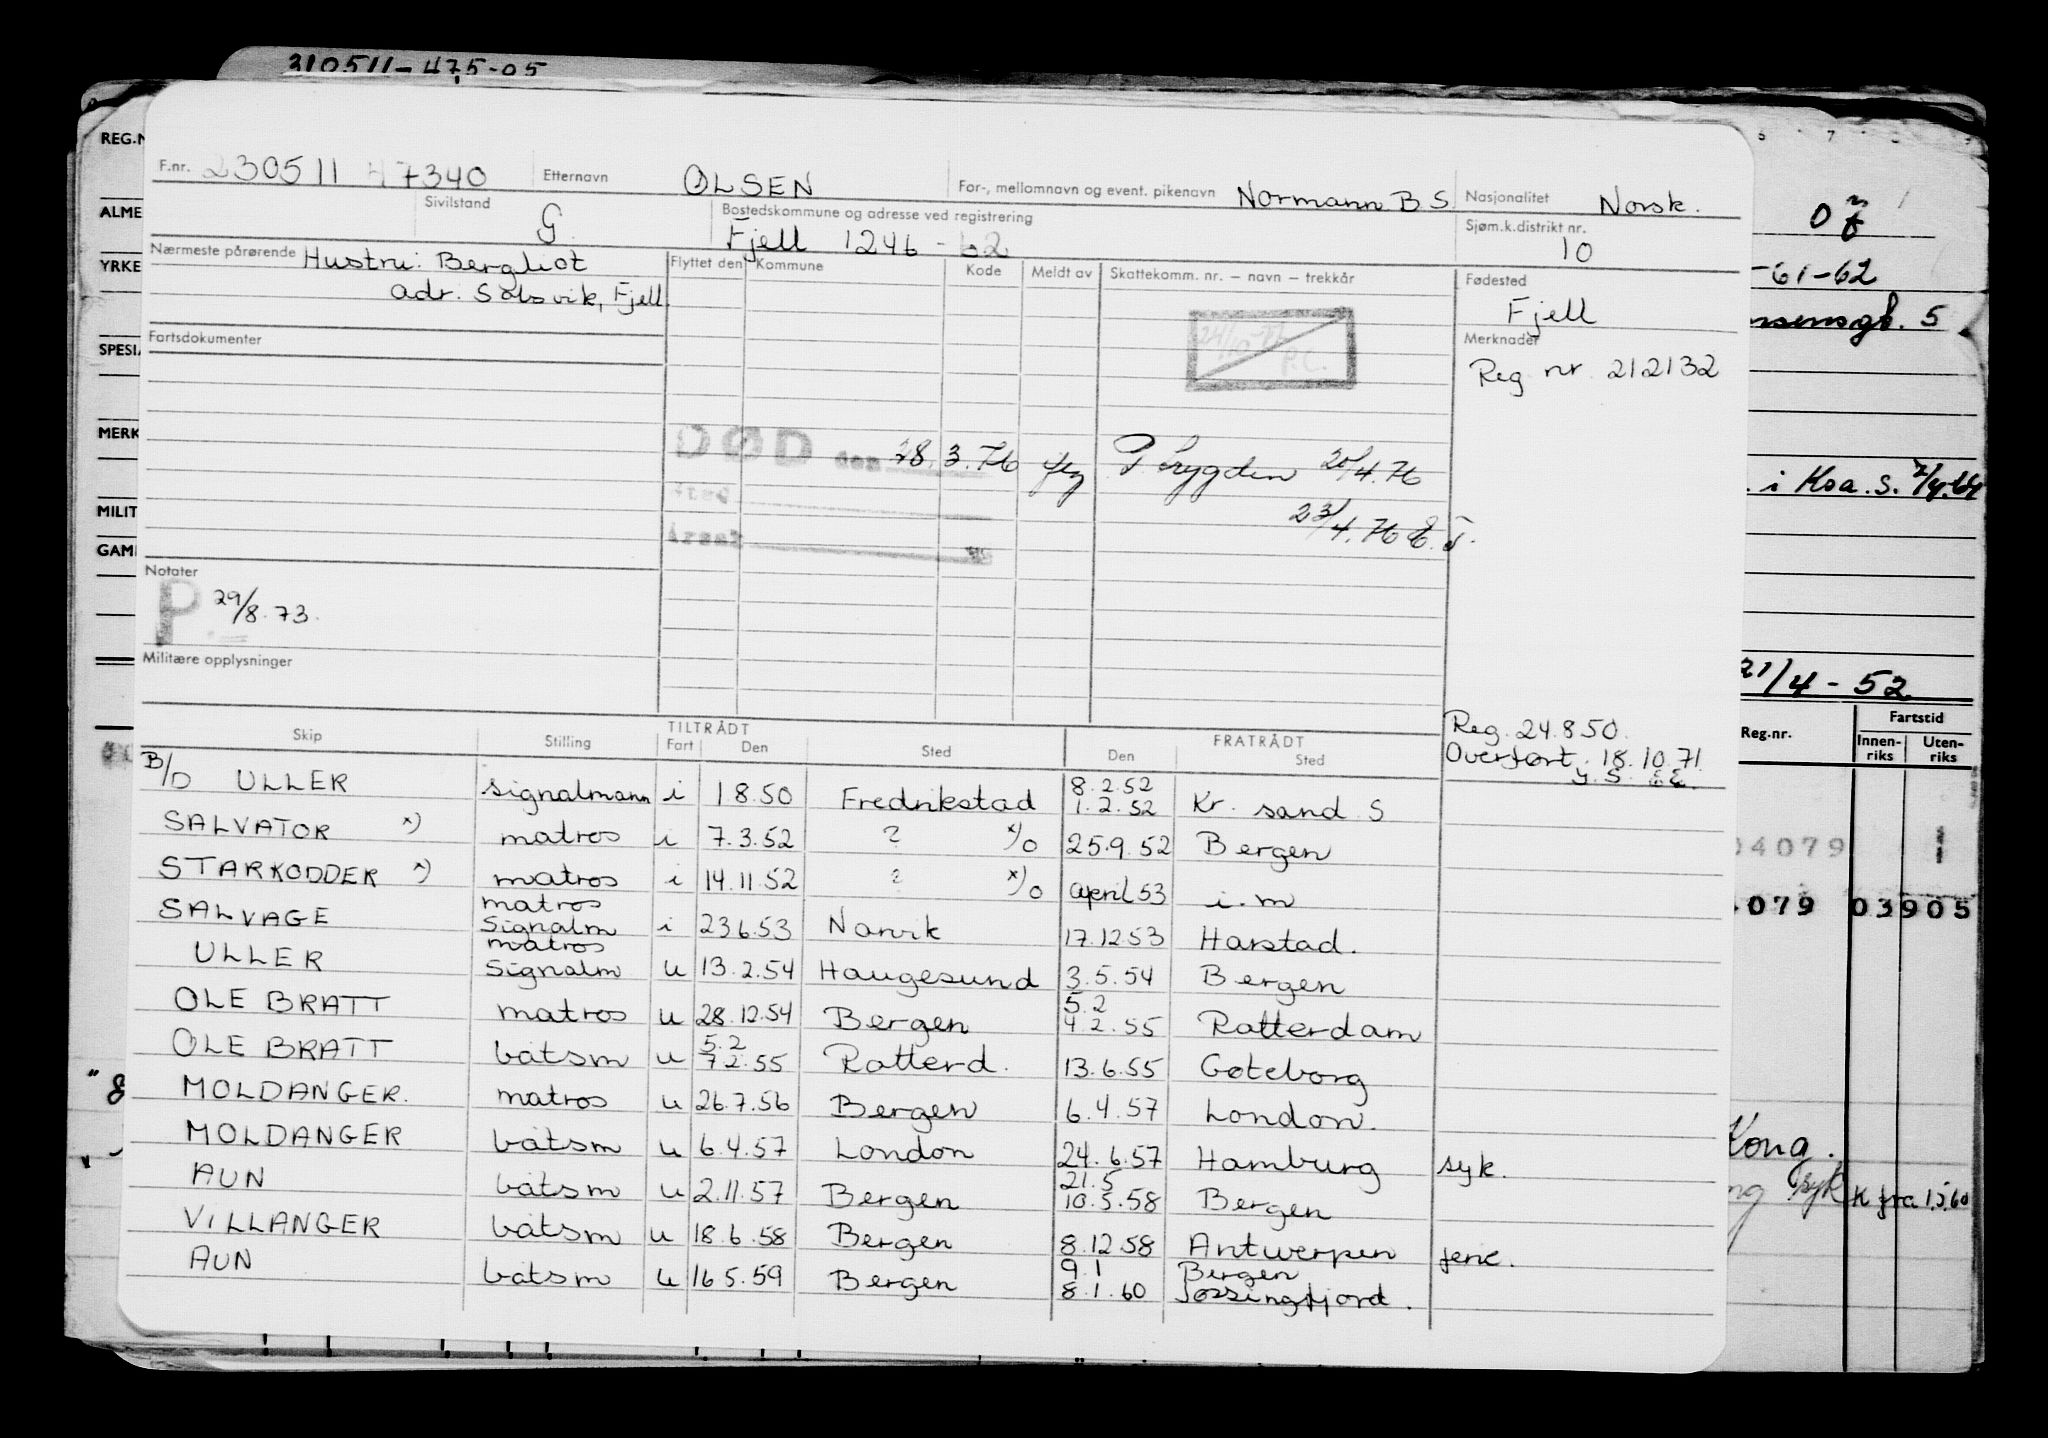 310511-475-05
REG.N
F.nr. 230511 47340 Etternavn OLSEN For-, mellomnavn og event. pikenavn Normann B.S. Nasjonalitet Norsk.
ALME
Sivilstand G. Bostedskommune og adresse ved registrering Fjell 1246 - 62 Sjøm.k.distrikt nr. 10
YRKE
Nærmeste pårørende Hustru: Bergliot
adr. Solsvik, Fjell.
Flyttet den Kommune Kode Meldt av Skattekomm. nr. — navn — trekkår Fødested
Fjell
-61-62
5
SPESIA
Fartsdokumenter
Merknader
Reg nr 212132
MERK
DØD den 28.3.76 P. trygden 20/4.76
sted
23/4.76 E.T.
Årsak
. i Koa.S. 7/4.64
MILIT
GAM
Notater
P 29/8.73.
Militære opplysninger
21/4-52
Reg. 24.8.50.
Overført. 18.10.71.
Reg.nr. Fartstid
Innen-riks Uten-riks
Skip Stilling TILTRÅDT Fart Den Sted FRATRÅDT Den Sted
B/D ULLER signalmann i 1 8.50 Fredrikstad 8.2.52 1.2.52 Kr. sand S
SALVATOR x) matros i 7.3.52 ? x)o 25.9.52 Bergen
STARKODDER x) matros i 14.11.52 ? x)o april 53 i.m
SALVAGE matros Signalm i 23.6.53 Narvik 17.12.53 Harstad.
ULLER matros Signalm u 13.2.54 Haugesund 3.5.54 Bergen
OLE BRATT matros u 28.12.54 Bergen 5.2 4.2.55 Rotterdam
OLE BRATT båtsm u 5.2 7.2.55 Rotterd. 13.6.55 Gøteborg
MOLDANGER. matros u 26.7.56 Bergen 6.4.57 London.
MOLDANGER båtsm u 6.4.57 London 24.6.57 Hamburg syk.
AUN båtsm u 2.11.57 Bergen 21.5 10.5.58 Bergen
VILLANGER båtsm u 18.6.58 Bergen 8.12.58 Antwerpen ferie.
AUN båtsm u 16 5.59 Bergen 9.1 8.1.60 Bergen Jøssingfjord.
04079
079 03905
Kong.
syk K fra 1.5.60